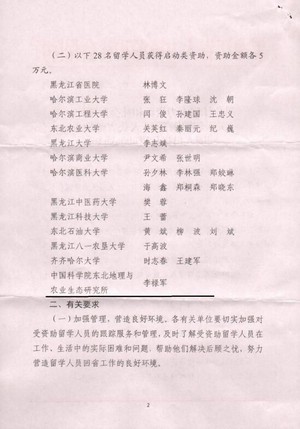 （二）以下 28 名留学人员获得启动类资助，资助金额各 5
万元。
黑龙江省医院 林博文
哈尔滨工业大学 张 狂 李隆球 沈 朝
哈尔滨工程大学 闫 俊 孙建国 王忠义
东北农业大学 关英红 秦丽元 纪 巍
黑龙江大学 李志斌
哈尔滨商业大学 尹文希 张世明
哈尔滨医科大学 孙夕林 李林强 郑姣琳
海 鑫 郑桐森 郑晓东
黑龙江中医药大学 樊 蓉
黑龙江科技大学 王 蕾
东北石油大学 黄 斌 柳 波 刘 斌
黑龙江八一农垦大学 于高波
齐齐哈尔大学 时志春 王建军
中国科学院东北地理与
农业生态研究所 李禄军
二、有关要求
（一）加强管理，营造良好环境。各有关单位要切实加强对
受资助留学人员的跟踪服务和管理，及时了解受资助留学人员在
工作、生活中的实际困难和问题，帮助他们解决后顾之忧，努力
营造留学人员回省工作的良好环境。
2